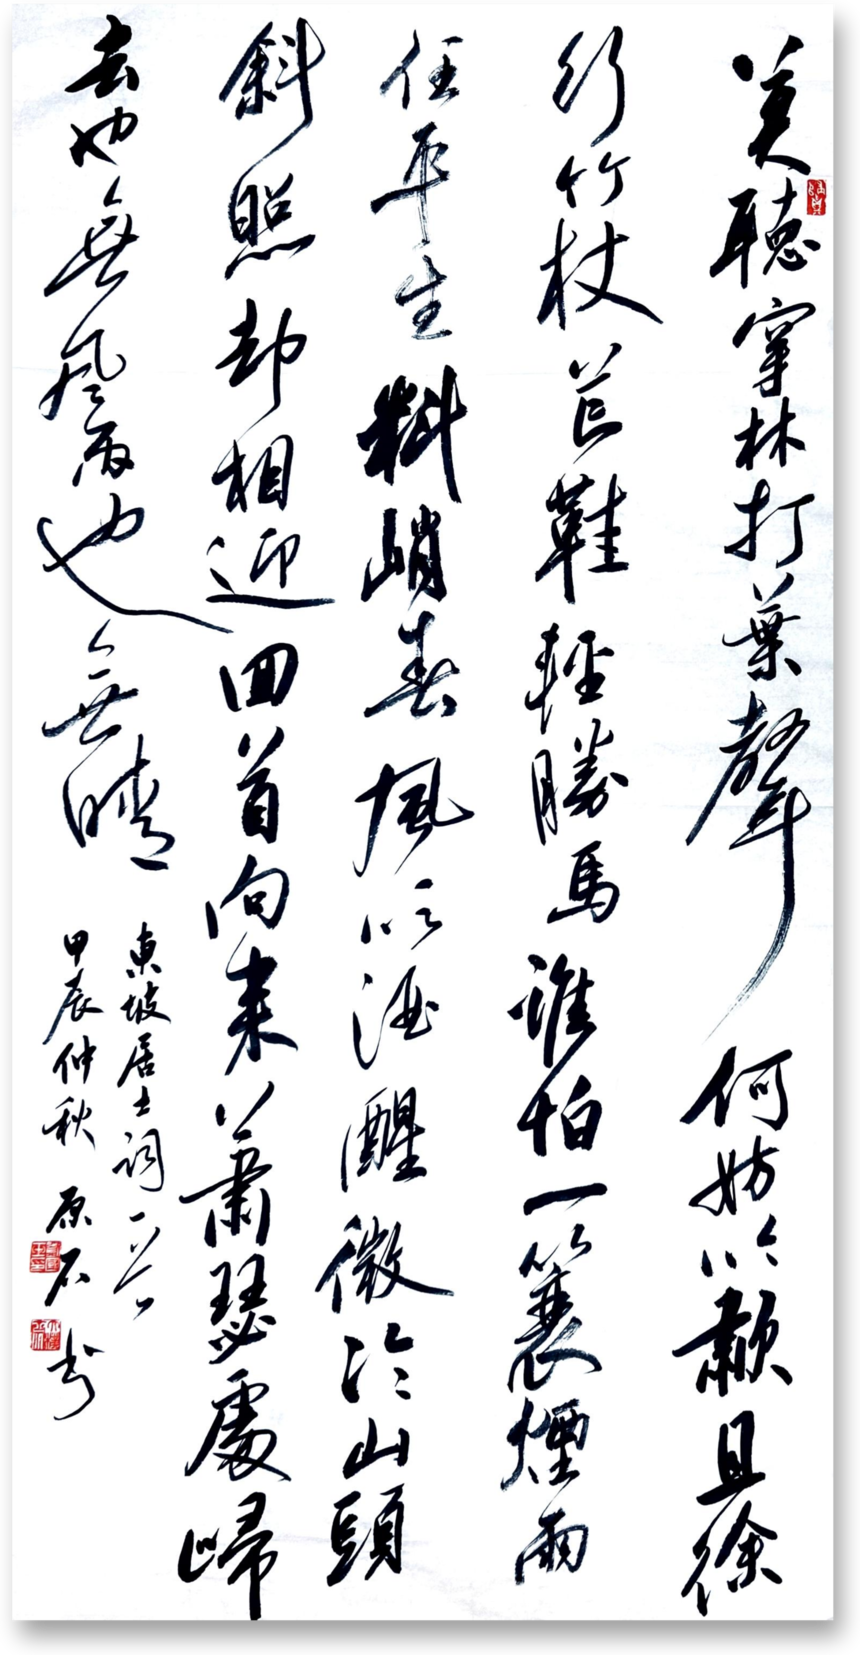 莫聽穿林打葉聲何妨吟歗且徐
行竹杖芒鞋輕勝馬誰怕一蓑煙雨
任平生料峭春風吹酒醒微冷山頭
斜照却相迎回首向来蕭瑟處歸
去也無風雨也無晴
東坡居士詞一首
甲辰仲秋原石書